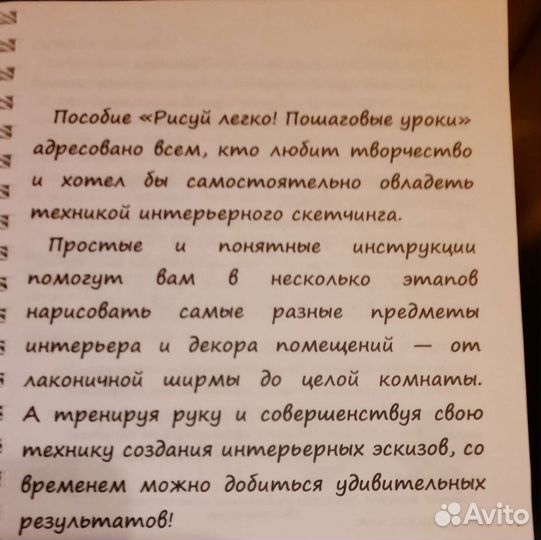 Пособие «Рисуй легко! Пошаговые уроки»
адресовано всем, кто любит творчество
и хотел бы самостоятельно овладеть
техникой интерьерного скетчинга.
Простые и понятные инструкции
помогут вам в несколько этапов
нарисовать самые разные предметы
интерьера и декора помещений — от
лаконичной ширмы до целой комнаты.
А тренируя руку и совершенствуя свою
технику создания интерьерных эскизов, со
временем можно добиться удивительных
результатов!
Avito